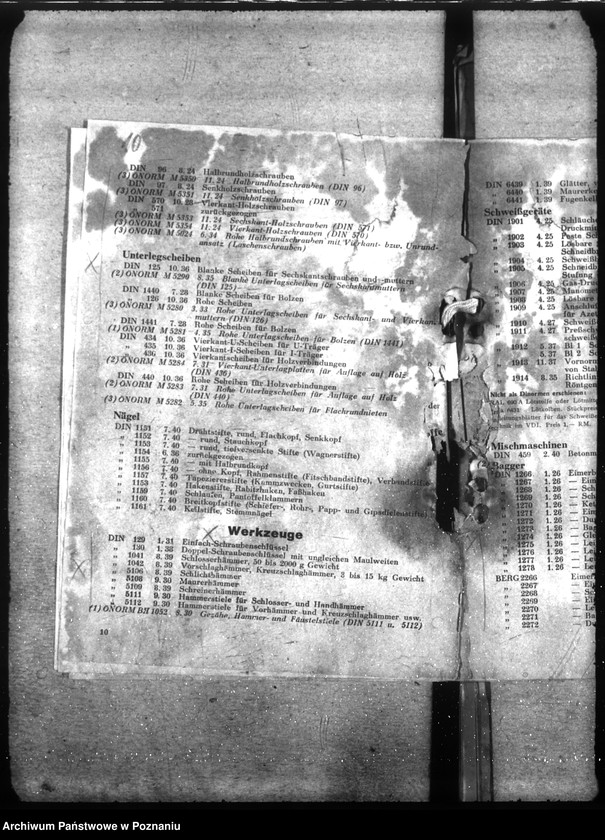 10
DIN 96 8.24 Halbrundholzschrauben
(3) ÖNORM M 5350 11.24 Halbrundholzschrauben (DIN 96)
DIN 97 8.24 Senkholzschrauben
(3) ÖNORM M 5351 11.24 Senkholzschrauben (DIN 97)
DIN 570 10.28 Vierkant-Holzschrauben
571 zurückgezogen
(3) ÖNORM M 5353 11.24 Sechskant-Holzschrauben (DIN 571)
(3) ÖNORM M 5354 11.24 Vierkant-Holzschrauben (DIN 570)
(3) ÖNORM M 5924 6.34 Rohe Halbrundschrauben mit Vierkant- bzw. Unrund-
ansatz (Laschenschrauben)
Unterlegscheiben
DIN 125 10.36 Blanke Scheiben für Sechskantschrauben und -muttern
(2) ÖNORM M 5290 8.35 Blanke Unterlegscheiben für Sechskantmuttern
(DIN 125)
DIN 1440 7.28 Blanke Scheiben für Bolzen
126 10.36 Rohe Scheiben
(3) ÖNORM M 5280 3.33 Rohe Unterlegscheiben für Sechskant- und Vierkant-
muttern (DIN 126)
DIN 1441 7.28 Rohe Scheiben für Bolzen
(1) ÖNORM M 5281 4.35 Rohe Unterlegscheiben für Bolzen (DIN 1441)
DIN 434 10.36 Vierkant-U-Scheiben für U-Träger
" 435 10.36 Vierkant-I-Scheiben für I-Träger
" 436 10.36 Vierkantscheiben für Holzverbindungen
(2) ÖNORM M 5284 7.31 Vierkant-Unterlagplatten für Auflage auf Holz
(DIN 436)
DIN 440 10.36 Rohe Scheiben für Holzverbindungen
(2) ÖNORM M 5283 7.31 Rohe Unterlegscheiben für Auflage auf Holz
(DIN 440)
(3) ÖNORM M 5282 5.35 Rohe Unterlegscheiben für Flachrundnieten
Nägel
DIN 1151 7.40 Drahtstifte, rund, Flachkopf, Senkkopf
" 1152 7.40 — rund, Stauchkopf
" 1153 7.40 — rund, tiefversenkte Stifte (Wagnerstifte)
" 1154 6.36 zurückgezogen
" 1155 7.40 — mit Halbrundkopf
" 1156 7.40 — ohne Kopf, Rahmenstifte (Fitschbandstifte), Verbundstifte
" 1157 7.40 Tapeziererstifte (Kammzwecken, Gurtstifte)
" 1158 7.40 Hakenstifte, Rabitzhaken, Faßhaken
" 1159 7.40 Schlaufen, Pantoffelklammern
" 1160 7.40 Breitkopfstifte (Schiefer-, Rohr-, Papp- und Gipsdielenstifte)
" 1161 7.40 Keilstifte, Stemmnägel
Werkzeuge
DIN 129 1.31 Einfach-Schraubenschlüssel
" 130 1.38 Doppel-Schraubenschlüssel mit ungleichen Maulweiten
" 1041 8.39 Schlosserhämmer, 50 bis 2000 g Gewicht
" 1042 8.39 Vorschlaghämmer, Kreuzschlaghämmer, 3 bis 15 kg Gewicht
" 5106 8.39 Schlichthämmer
" 5108 9.30 Maurerhämmer
" 5109 8.39 Schreinerhämmer
" 5111 9.30 Hammerstiele für Schlosser- und Handhämmer
" 5112 9.30 Hammerstiele für Vorhämmer und Kreuzschlaghämmer usw.
(1) ÖNORM BH 1052 8.30 Gezähe, Hammer- und Fäustelstiele (DIN 5111 u. 5112)
10
der
DIN 6439 1.39 Glätter,
" 6440 1.39 Maurerke
" 6441 1.39 Fugenkell
Schweißgeräte
DIN 1901 4.25 Schläuche
Druckmi
" 1902 4.25 Feste
" 1903 4.25 Lösbare
Schneidb
" 1904 4.25 Schweißb
" 1905 4.25 Schneidb
Stufung
" 1906 4.25 Gas-Dru
" 1907 4.25 Manomet
" 1908 4.25 Lösbare
" 1909 4.25 Anschluß
für Azet
" 1910 4.27 Schweiße
" 1911 4.27 Preßsch
schweiße
" 1912 5.37 Bl 1
5.37 Bl 2
" 1913 11.37 Vornorm
von Stah
" 1914 8.35 Richtlin
Röntgen
Nicht als Dinormen erschienen:
Mischmaschinen
DIN 459 2.40 Betonm
Bagger
DIN 1266 1.26 Eimerb
" 1267 1.26 — Ein
" 1268 1.26 — Sch
" 1269 1.26 — Sch
" 1270 1.26 — Ket
" 1271 1.26 — Eim
" 1272 1.26 — Du
" 1273 1.26 — Ba
" 1274 1.26 — Gle
" 1275 1.26 — Lei
" 1276 1.26 — Lei
" 1277 1.26 — Lei
" 1278 1.26 — Lei
BERG 2266 Eimer
" 2267 — Ei
" 2268
" 2269
" 2270 — Le
" 2271 — Ba
" 2272
Archiwum Państwowe w Poznaniu